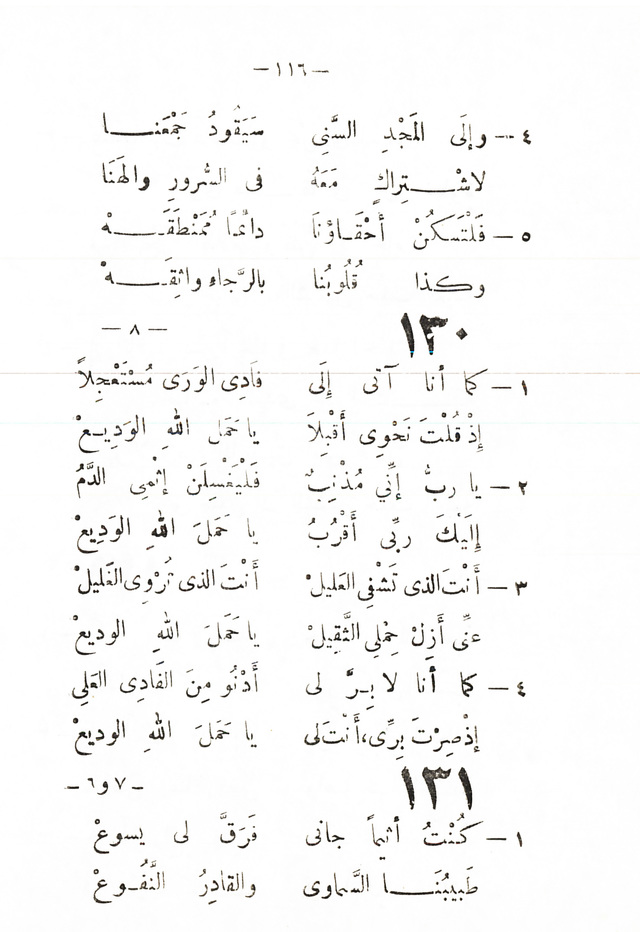 — ١١٦ —
٤ — وإلَى المَجْدِ السَّنِى سَيَقُودُ جَمْعَنــا
لاشْــتِراكٍ مَعَهُ فى السُّرورِ والهَنَا
٥ — فَلْتَسكُنْ أَحْقَـاؤنَا دائمًا مُمَنْطَقَــهْ
وكـذا قُلُوبُنا بالرَّجاءِ واثِقَــهْ
١٣٠ — ٨ —
١ — كما أنا آتى إِلَى فَادِى الوَرَى مُسْتَعْجِلاً
إِذْ قُلْتَ نَحْوِى أَقْبِلَا يا حَمَل اللهِ الوَدِيـعْ
٢ — يا ربُّ إنِّي مُذْنِبٌ فَلْيَغْسِلَنْ إثْمِى الدَّمُ
إِلَيْكَ ربِّى أَقْرُبُ يا حَمَلَ اللهِ الوَدِيعْ
٣ — أَنْتَ الذى تَشْفِى العَليلْ أَنْتَ الذى تُرْوِى الغَليلْ
عنِّى أَزِلْ حِمْلِى الثَّقِيلْ يا حَمَلَ اللهِ الوديعْ
٤ — كما أنا لا بِـرَّ لى أَدْنُو مِنَ الفَادِى العَلِى
إذْ صِرْتَ بِرِّى، أَنْتَ لى يا حَمَلَ اللهِ الوديعْ
١٣١ — ٧ و ٦ —
١ — كُنْتُ أثيماً جانى فَرَقَّ لى يسوعْ
طَبِيبُنَــا السَّماوى والقادِرُ النَّفُـوعْ